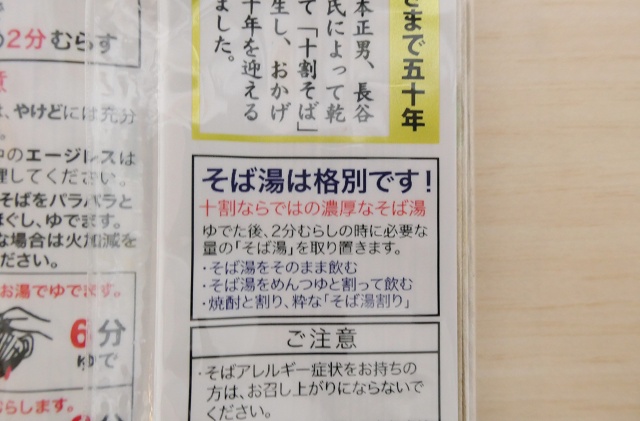 さまで五十年
本正男、長谷
氏によって乾
て「十割そば」
生し、おかげ
十年を迎える
ました。
そば湯は格別です!
十割ならではの濃厚なそば湯
ゆでた後、2分むらしの時に必要な
量の「そば湯」を取り置きます。
・そば湯をそのまま飲む
・そば湯をめんつゆと割って飲む
・焼酎と割り、粋な「そば湯割り」
ご注意
・そばアレルギー症状をお持ちの
方は、お召し上がりにならないで
ください。
の2分むらす
意
は、やけどには充分
中のエージレスは
理してください。
そばをパラパラと
ほぐし、ゆでます。
な場合は火加減を
ださい。
お湯でゆでます。
6分
ゆで
らします。